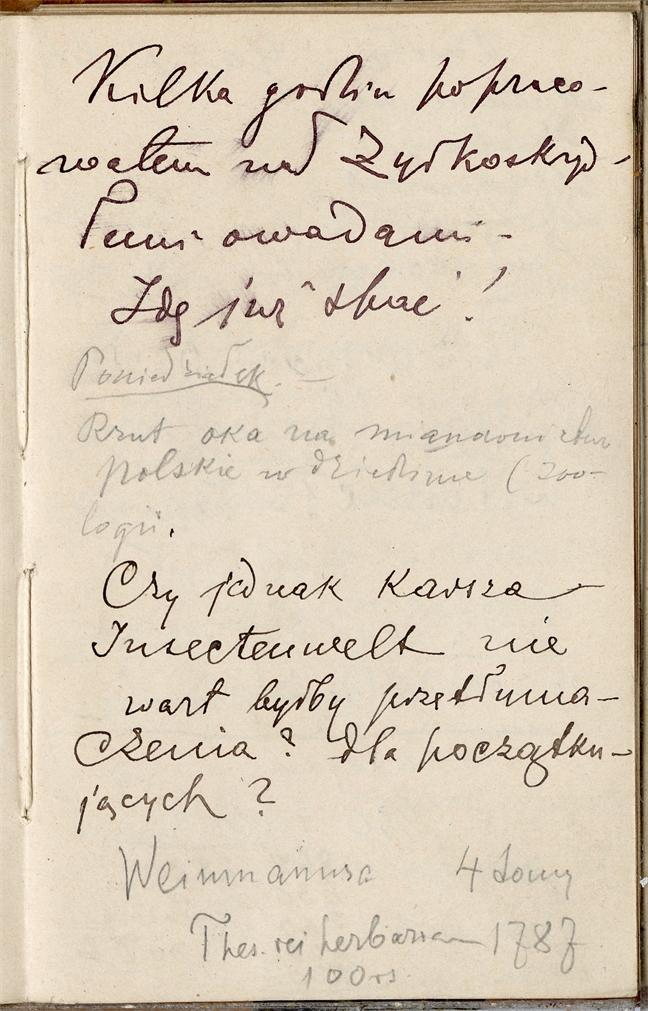 Kilka godzin popraco-
wałem nad Żyłkoskrzy-
łemi owadami -
Idę już spać!
Poniedziałek. -
Rzut oka na mianownictwo
polskie w dziedzinie (zoo-
logii.
Czy jednak Karsza
Insectenwelt nie
wart byłby przetłuma-
czenia? dla początku-
jących?
Weinmannsa 4 tomy
Thes. rei herbariae 1787
100 rs.